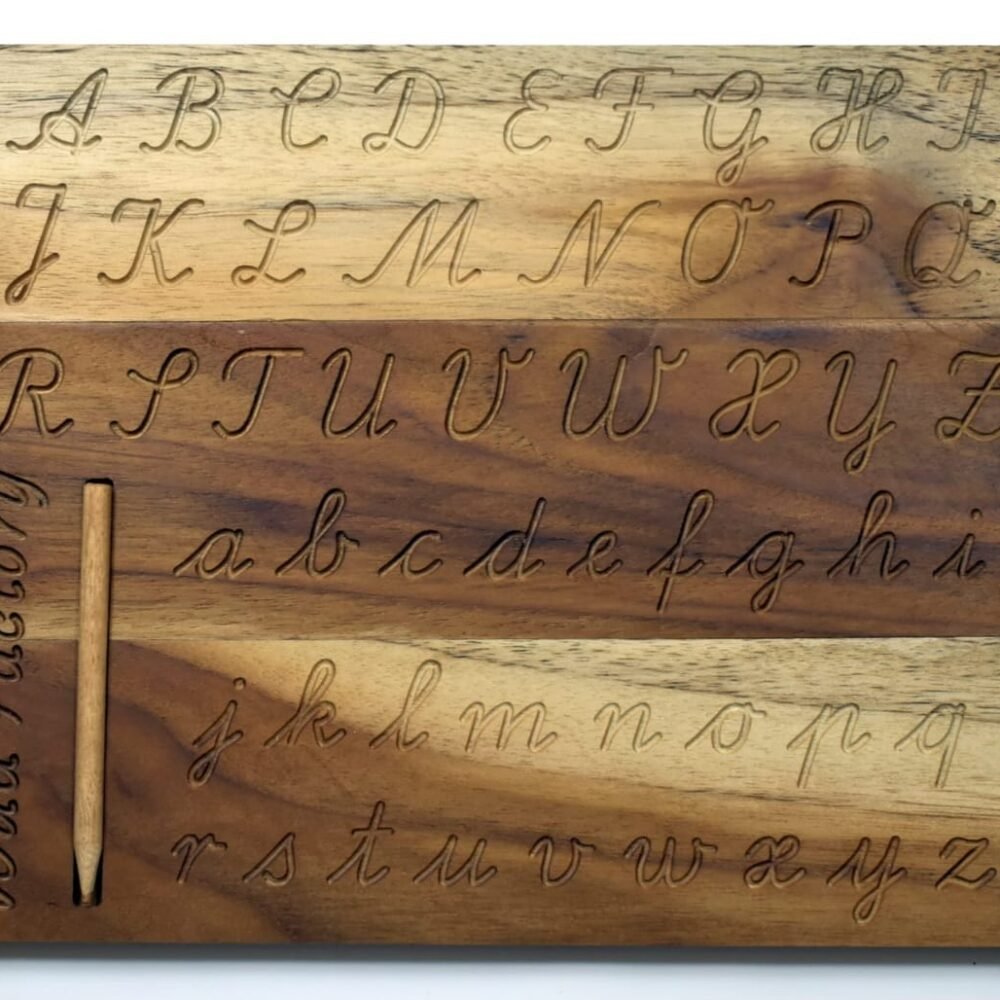 A B C D E F G H I
J K L M N O P Q
R S T U V W X Y Z
a b c d e f g h i
j k l m n o p q
r s t u v w x y z